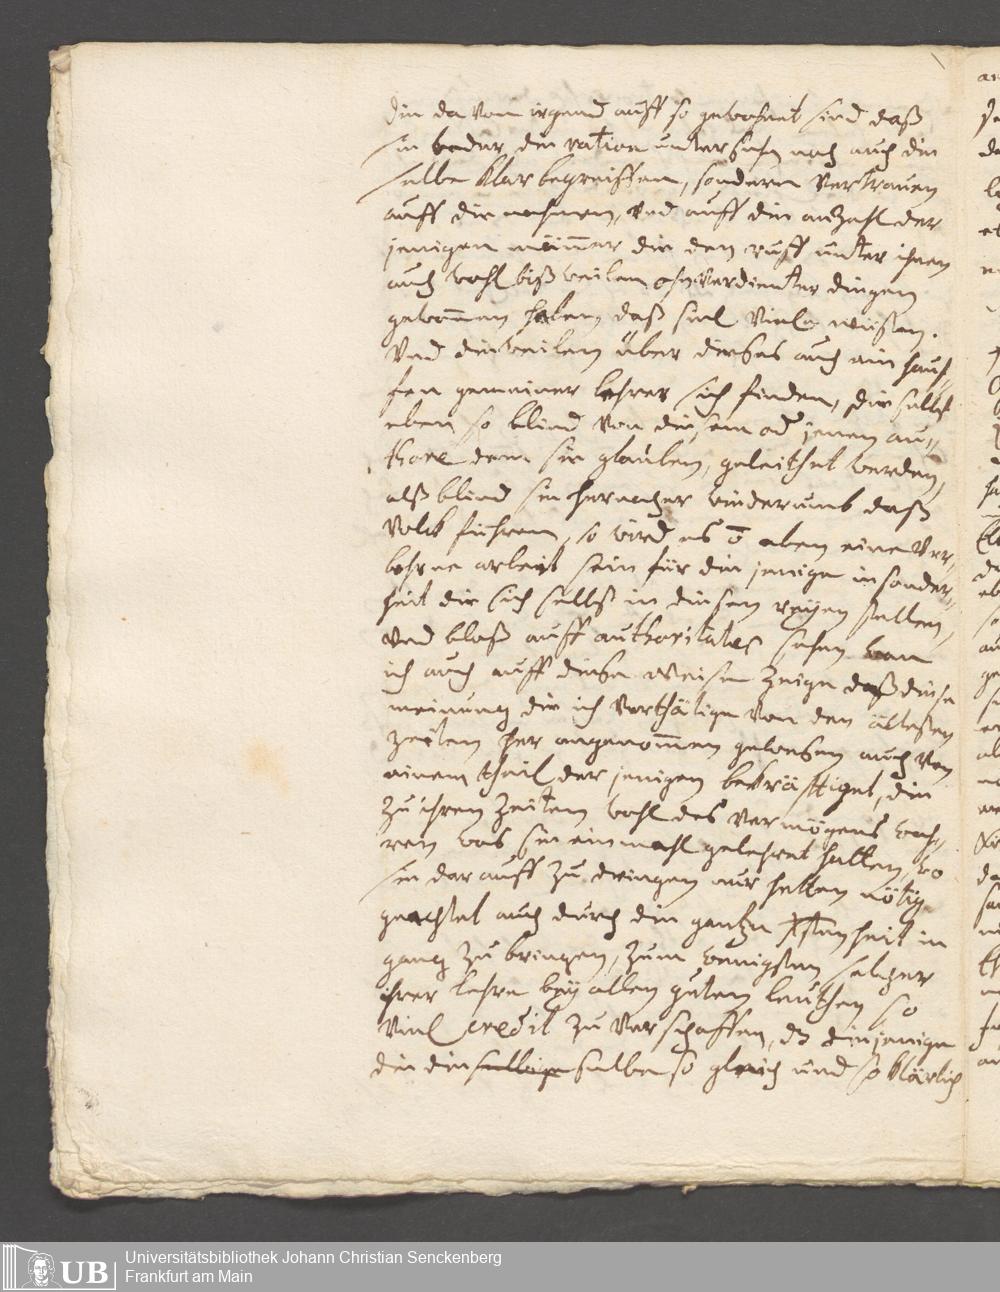 die da von irgend auff so gewohnet sind daß
sie weder die ration untersuchen noch auch die
selbe klar begreiffen, sondern vertrauen
auff die nahmen, und auff die anzahl der
jenigen männer die den ruff unter ihnen
auch wohl bißweilen ohnverdienter dingen
gewonnen haben, daß sie viele wüsten.
Und dieweilen über dieses auch ein hauf-
fen gemeiner lehrer sich finden, die selbst
eben so blind von diesem od jenem au-
thore dem sie glauben, geleithet werden,
alß blind sie hernacher wiederumb daß
volk führen, so wird es eben eine ver-
lohrne arbeit sein für die jenige in sonder-
heit die sich selbst in diesen reyen stellen,
und bloß auff authoritates sehen wan
ich auch auff diese weise zeige daß diese
meinung die ich verthätige von den ältesten
zeiten her angenommen gewesen auch von
einem theil der jenigen bekräfftiget, die
zu ihren zeiten wohl des vermögens wah-
ren was sie einmahl gelehret hatten, wo
sie darauff zu dringen nur hetten nötig
geachtet auch durch die gantze Xstenheit in
gang zu bringen, zum wenigsten solcher
ihrer lehre bey allen guten leuthen so
viel credit zu verschaffen, dz diejenige
die die selbe so gleich und so klärlich
Universitätsbibliothek Johann Christian Senckenberg
UB Frankfurt am Main